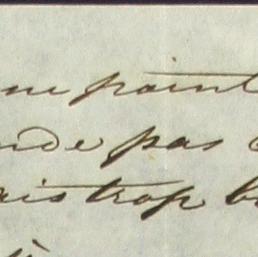 me point
nde pas
ais trop b